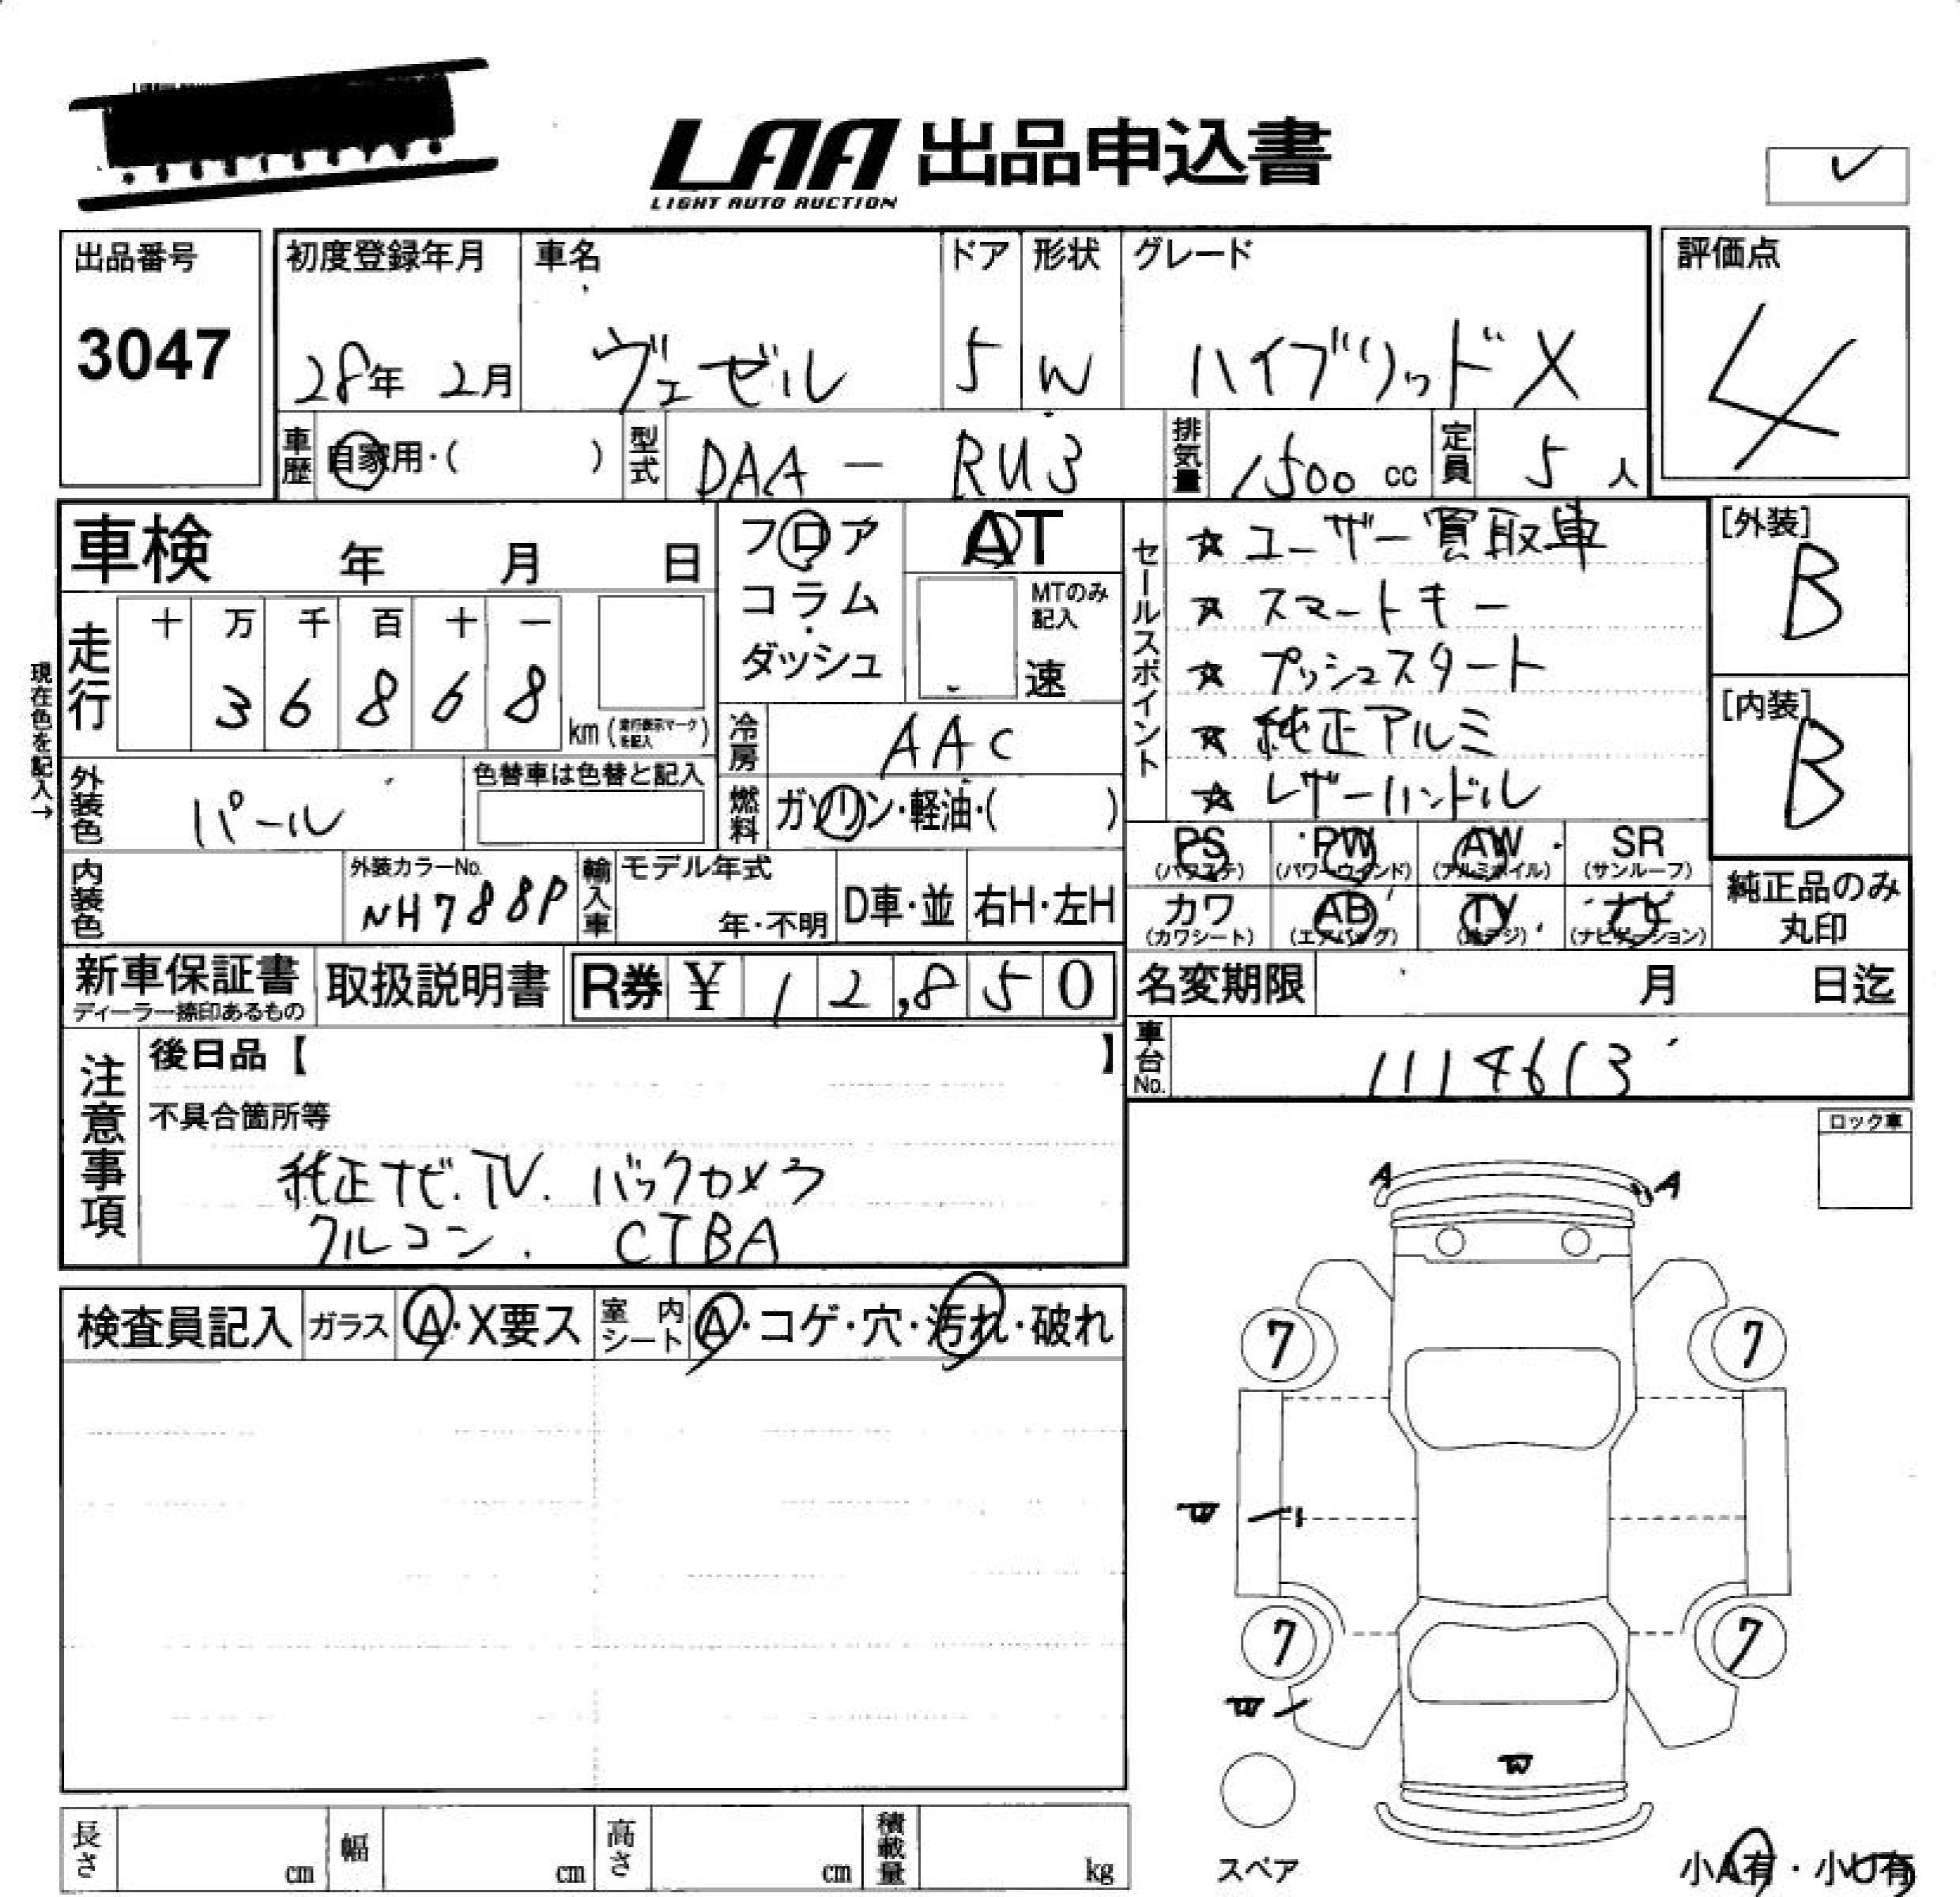 LAA 出品申込書
LIGHT AUTO AUCTION
出品番号
3047
初度登録年月
28年 2月
車名
ヴェゼル
ドア
5
形状
W
グレード
ハイブリッドX
評価点
4
車歴
自家用・( )
型式
DAA - RU3
排気量
1500 cc
定員
5 人
車検 年 月 日
フロア
コラム
・
ダッシュ
AT
MTのみ
記入
速
セールスポイント
☆ ユーザー買取車
☆ スマートキー
☆ プッシュスタート
☆ 純正アルミ
☆ レザーハンドル
[外装]
B
[内装]
B
現在色を記入→
走行
十 万 千 百 十 一
3 6 8 6 8
km (走行表示マークを記入)
冷房
AAC
外装色
パール
色替車は色替と記入
燃料
ガソリン・軽油・( )
PS
(パワステ)
PW
(パワーウインド)
AW
(アルミホイル)
SR
(サンルーフ)
カワ
(カワシート)
AB
(エアバッグ)
TV
(地デジ)
ナビ
(ナビゲーション)
純正品のみ
丸印
内装色
外装カラーNo.
NH788P
輸入車
モデル年式
年・不明
D車・並
右H・左H
新車保証書
ディーラー捺印あるもの
取扱説明書
R券 ¥ 12,850
名変期限 月 日迄
車台No.
1114613
注意事項
後日品【 】
不具合箇所等
純正ナビ.TV. バックカメラ
クルコン. CTBA
ロック車
A
A
検査員記入
ガラス
A・X要ス
室内シート
A・コゲ・穴・汚れ・破れ
7
7
W
7
7
W
W
スペア
小A有・小U有
長さ cm
幅 cm
高さ cm
積載量 kg